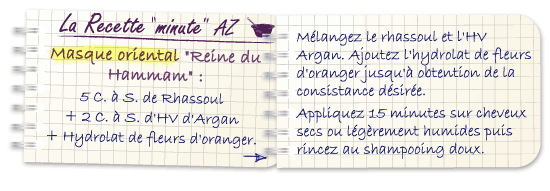 La Recette "minute" AZ
Masque oriental "Reine du
Hammam" :
5 C. à S. de Rhassoul
+ 2 C. à S. d'HV d'Argan
+ Hydrolat de fleurs d'oranger.
Mélangez le rhassoul et l'HV
Argan. Ajoutez l'hydrolat de fleurs
d'oranger jusqu'à obtention de la
consistance désirée.
Appliquez 15 minutes sur cheveux
secs ou légèrement humides puis
rincez au shampooing doux.